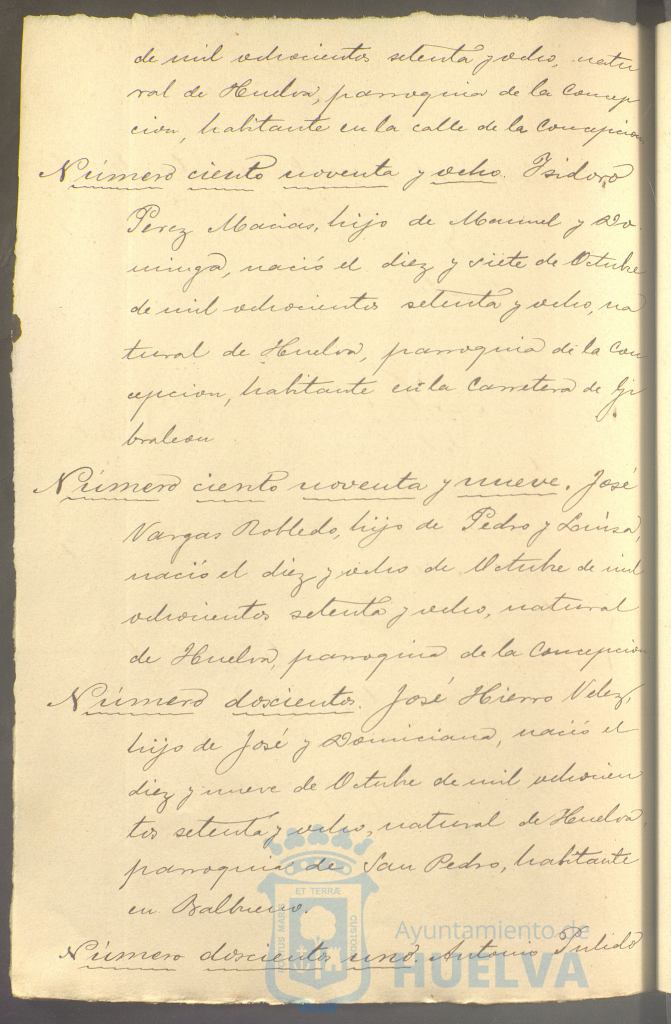 de mil ochocientos setenta y ocho, natu
ral de Huelva, parroquia de la Concep
cion, habitante en la calle de la Concepcion
Número ciento noventa y ocho. Isidoro
Perez Macias, hijo de Manuel y Do
minga, nació el diez y siete de Octubre
de mil ochocientos setenta y ocho, na
tural de Huelva, parroquia de la Con
cepcion, habitante en la Carretera de Gi
braleon
Número ciento noventa y nueve. José
Vargas Robledo, hijo de Pedro y Luisa,
nació el diez y ocho de Octubre de mil
ochocientos setenta y ocho, natural
de Huelva, parroquia de la Concepcion
Número doscientos. José Hierro Velez,
hijo de José y Domiciana, nació el
diez y nueve de Octubre de mil ochocien
tos setenta y ocho, natural de Huelva,
parroquia de San Pedro, habitante
en Balbueno.
Número doscientos uno. Antonio Pulido
PORTUS MARIS ET TERRÆ CUSTODIA
Ayuntamiento de
HUELVA